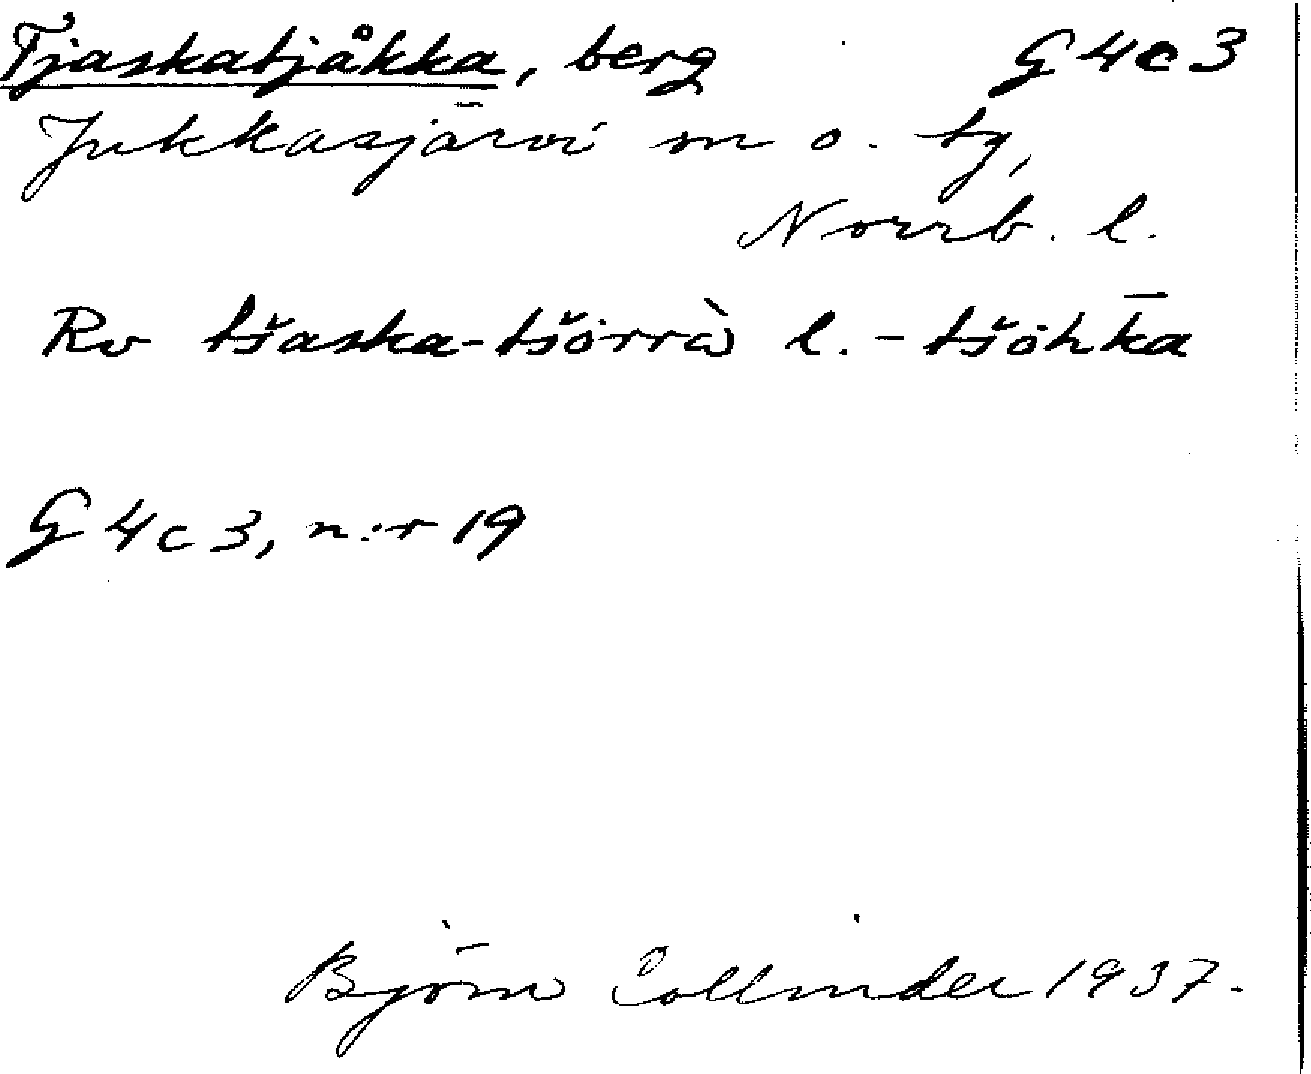 Tjaskatjåkka, berg G4c3
Jukkasjärvi m o. tg,
Norrb. l.
Rv tšaska-tšȯrrà l. -tšȯhk̄a
G4c3, n:r 19
Björn Collinder 1937.